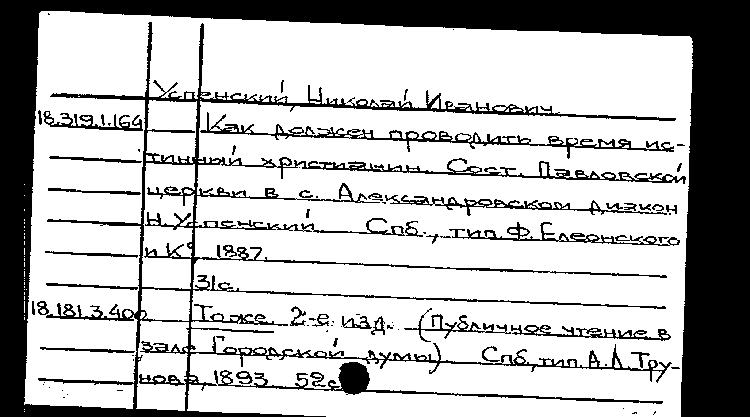 Успенский, Николай Иванович.
18.319.1.164 Как должен проводить время ис-
тинный христианин. Сост. Павловской
церкви в с. Александровском диакон
Н. Успенский. Спб., тип. Ф. Елеонского
и К°, 1887.
31с.
18.181.3.400 То же. 2-е изд. (Публичное чтение в
зале Городской думы) Спб., тип. А.Л. Тру-
нова, 1893. 52с